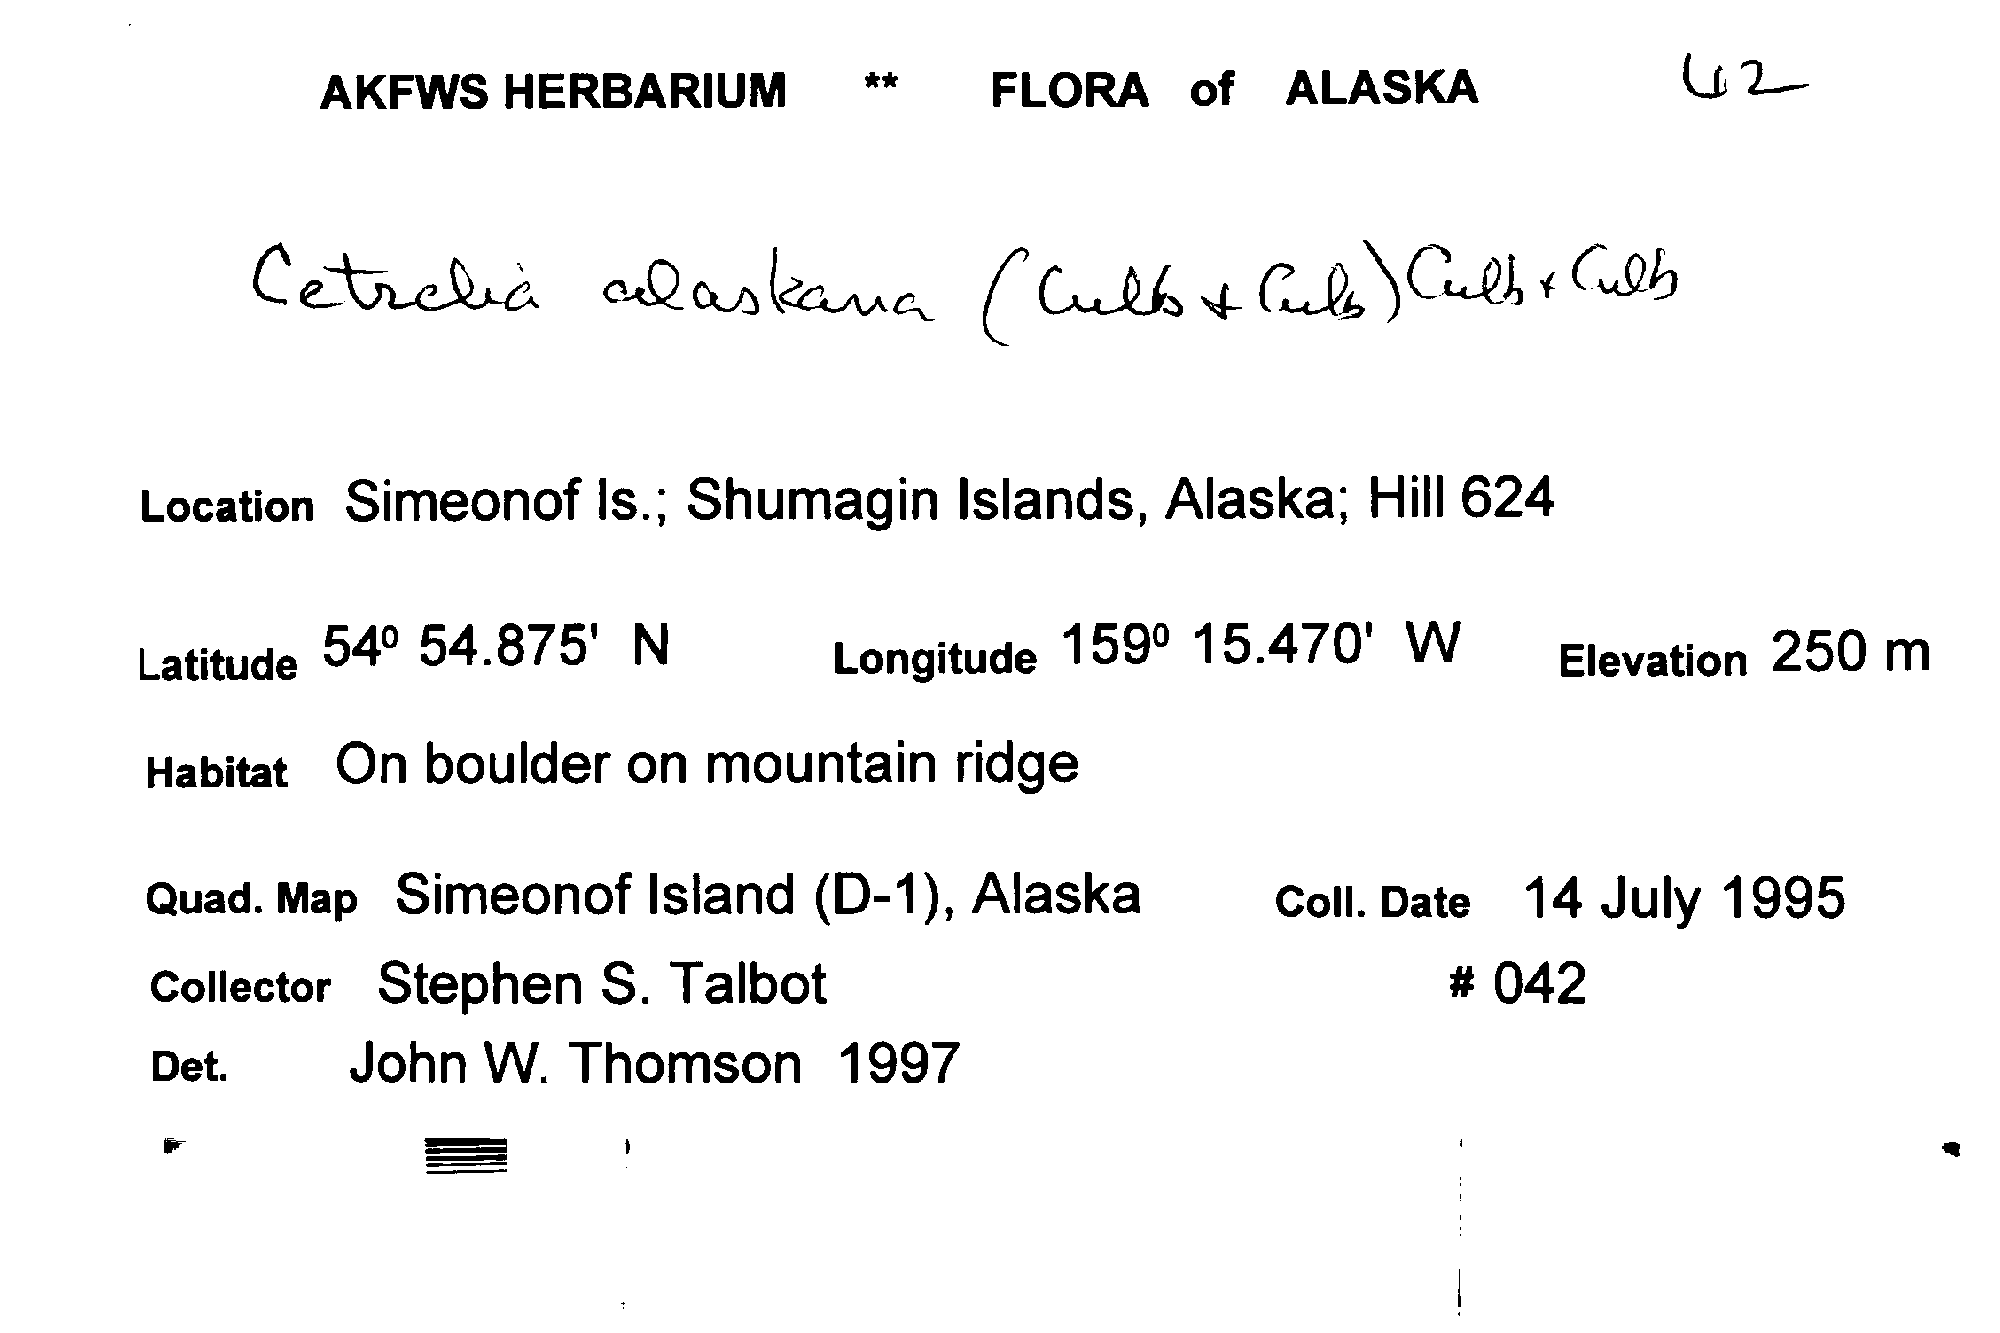 AKFWS HERBARIUM ** FLORA of ALASKA 42
Cetrelia alaskana (Culb + Culb) Culb + Culb
Location Simeonof Is.; Shumagin Islands, Alaska; Hill 624
Latitude 54º 54.875' N Longitude 159º 15.470' W Elevation 250 m
Habitat On boulder on mountain ridge
Quad. Map Simeonof Island (D-1), Alaska Coll. Date 14 July 1995
Collector Stephen S. Talbot # 042
Det. John W. Thomson 1997